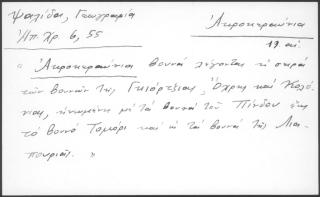 Ψαλίδα, Γεωγραφία
Ηπ. Χρ. 6, 55
Ακροκεραύνια
19 αι.
« Ακροκεραύνια βουνά λέγονται η σειρά
των βουνών της Γκιόρτζιας, Όχρης και Κολό-
νιας, ενωμένη με τα βουνά του Πίνδου έως
το βουνό Τομόρι και ως τα βουνά της Λια-
πουριάς. »